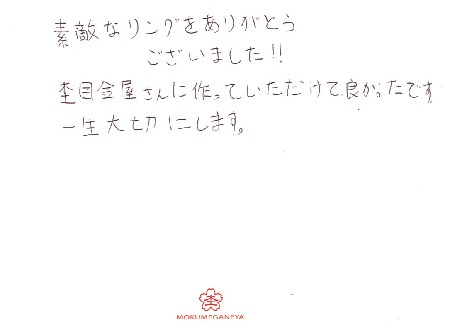 素敵なリングをありがとう
ございました!!
杢目金屋さんに作っていただけて良かったです
一生大切にします。
杢
MOKUMEGANEYA